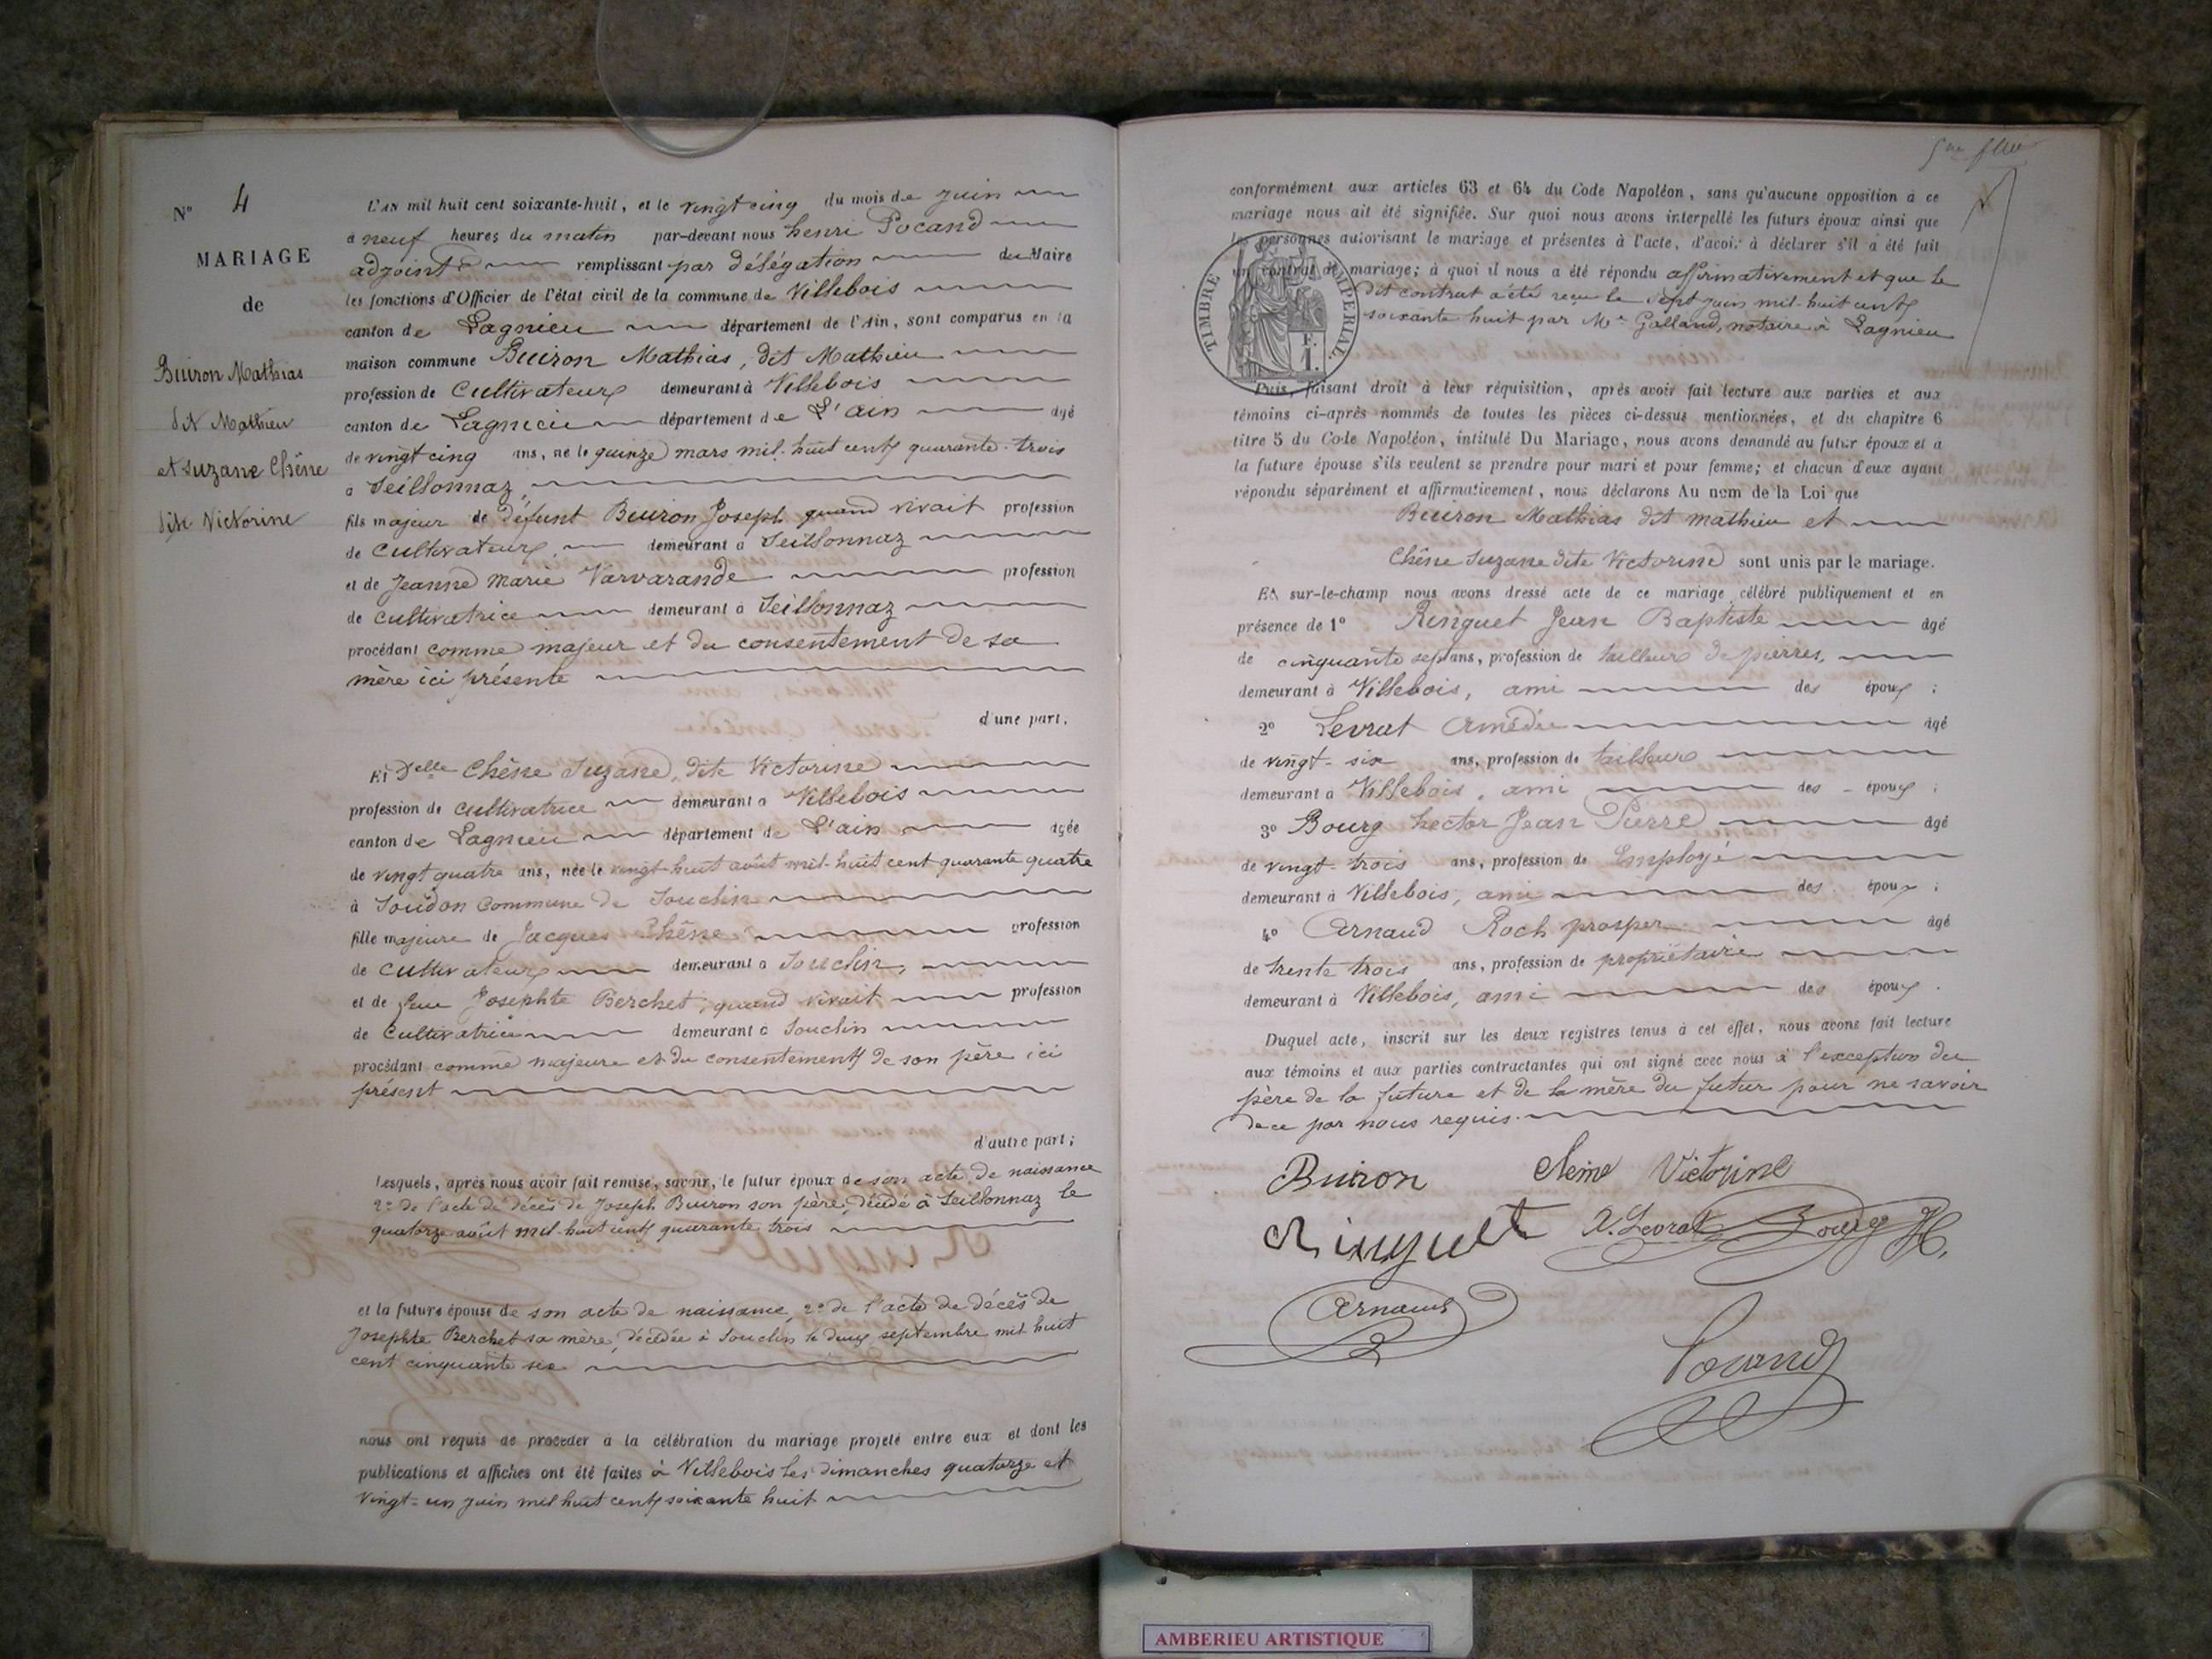 N° 4
MARIAGE
de
Buiron Mathias
dit Mathieu
et Suzane Chêne
dite Victorine
L'AN mil huit cent soixante-huit, et le vingt cinq du mois de juin
à neuf heures du matin par-devant nous henri Pocand
adjoint remplissant par délégation du Maire
les fonctions d'Officier de l'état civil de la commune de Villebois
canton de Lagnieu département de l'Ain, sont comparus en la
maison commune Buiron Mathias, dit Mathieu
profession de Cultivateur demeurant à Villebois
canton de Lagnieu département de L'ain âgé
de vingt cinq ans, né le quinze mars mil-huit cent quarante-trois
à Seillonnaz,
fils majeur de défunt Buiron Joseph quand vivait profession
de Cultivateur, demeurant à Seillonnaz
et de Jeanne Marie Varvarande profession
de Cultivatrice demeurant à Seillonnaz
procédant comme majeur et du consentement de sa
mère ici présente
d'une part,
Et Delle Chêne Suzane, dite Victorine
profession de cultivatrice demeurant à Villebois
canton de Lagnieu département de L'ain âgée
de vingt quatre ans, née le vingt-huit août mil-huit cent quarante quatre
à Soudon Commune de Souclin
fille majeure de Jacques Chêne profession
de Cultivateur demeurant à Souclin,
et de feue Josephte Berchet, quand vivait profession
de Cultivatrice demeurant à Souclin
procédant comme majeure et du consentement de son père ici
présent
d'autre part;
Lesquels, après nous avoir fait remise, savoir, le futur époux de son acte de naissance
2° de l'acte de décès de Joseph Buiron son père, décédé à Seillonnaz le
quatorze août mil-huit cent quarante trois
et la future épouse de son acte de naissance, 2° de l'acte de décès de
Josephte Berchet sa mère, décédée à Souclin le deux septembre mil huit
cent cinquante six
nous ont requis de procéder à la célébration du mariage projeté entre eux et dont les
publications et affiches ont été faites à Villebois les dimanches quatorze et
vingt-un juin mil huit cent soixante huit
conformément aux articles 63 et 64 du Code Napoléon, sans qu'aucune opposition à ce
mariage nous ait été signifiée. Sur quoi nous avons interpellé les futurs époux ainsi que
les personnes autorisant le mariage et présentes à l'acte, d'avoir à déclarer s'il a été fait
un contrat de mariage; à quoi il nous a été répondu affirmativement et que le
dit contrat a été reçu le sept juin mil-huit cent
soixante huit par Me Galland, notaire à Lagnieu
TIMBRE IMPERIAL.
F.
1.
Puis, faisant droit à leur réquisition, après avoir fait lecture aux parties et aux
témoins ci-après nommés de toutes les pièces ci-dessus mentionnées, et du chapitre 6
titre 5 du Code Napoléon, intitulé Du Mariage, nous avons demandé au futur époux et à
la future épouse s'ils veulent se prendre pour mari et pour femme; et chacun d'eux ayant
répondu séparément et affirmativement, nous déclarons Au nom de la Loi que
Buiron Mathias dit mathieu et
Chêne Suzane dite Victorine sont unis par le mariage.
Et sur-le-champ nous avons dressé acte de ce mariage célébré publiquement et en
présence de 1° Ringuet Jean Baptiste âgé
de cinquante sept ans, profession de tailleur de pierres,
demeurant à Villebois, ami des époux;
2° Levrat Amédée âgé
de vingt-six ans, profession de tailleur
demeurant à Villebois, ami des époux;
3° Bourg hector Jean Pierre âgé
de vingt-trois ans, profession de Employé
demeurant à Villebois, ami des époux;
4° Arnaud Roch prosper âgé
de trente trois ans, profession de propriétaire
demeurant à Villebois, ami des époux.
Duquel acte, inscrit sur les deux registres tenus à cet effet, nous avons fait lecture
aux témoins et aux parties contractantes qui ont signé avec nous à l'exception du
père de la future et de la mère du futur pour ne savoir
de ce par nous requis.
Buiron Chêne Victorine
Ringuet A. Levrat Bourg H.
Arnaud
Pocand
AMBERIEU ARTISTIQUE